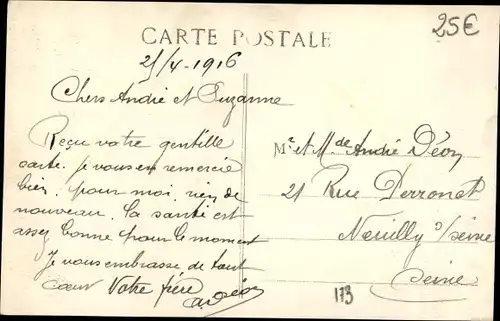 25€
CARTE POSTALE
25/4-1916
Chers André et Suzanne
Reçu votre gentille
carte. je vous en remercie
bien. pour moi, rien de
nouveau. la santé est
assez bonne pour le moment
Je vous embrasse de tout
cœur Votre père
A. Déon
Mr. et Mde André Déon
21 Rue Perronet
Neuilly s/seine
Seine
173